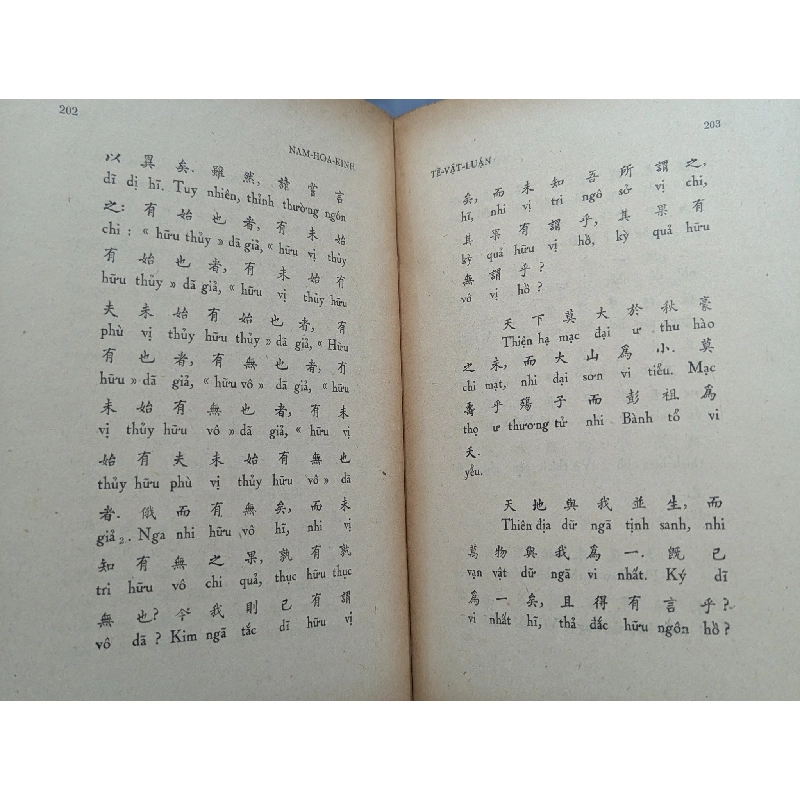 202
NAM-HOA-KINH
以 異 矣. 雖 然, 請 嘗 言
dĩ dị hĩ. Tuy nhiên, thỉnh thường ngôn
之: 有 始 也 者, 有 未 始
chi : « hữu thủy » dã giả, « hữu vị thủy
有 始 也 者, 有 未 始 有
hữu thủy » dã giả, « hữu vị thủy hữu
夫 未 始 有 始 也 者, 有
phù vị thủy hữu thủy » dã giả, « Hữu
有 也 者, 有 無 也 者, 有
hữu » dã giả, « hữu vô » dã giả, « hữu
未 始 有 無 也 者, 有 未
vị thủy hữu vô » dã giả, « hữu vị
始 有 夫 未 始 有 無 也
thủy hữu phù vị thủy hữu vô » dã
者. 俄 而 有 無 矣, 而 未
giả₂. Nga nhi hữu vô hĩ, nhi vị
知 有 無 之 果, 孰 有 孰
tri hữu vô chi quả, thục hữu thục
無 也? 今 我 則 已 有 謂
vô dã ? Kim ngã tắc dĩ hữu vị
203
TỀ-VẬT-LUẬN
矣, 而 未 知 吾 所 謂 之,
hĩ, nhi vị tri ngô sở vị chi,
其 果 有 謂 乎, 其 果 有
kỳ quả hữu vị hồ, kỳ quả hữu
無 謂 乎?
vô vị hồ ?
天 下 莫 大 於 秋 豪
Thiện hạ mạc đại ư thu hào
之 末, 而 大 山 為 小. 莫
chi mạt, nhi đại sơn vi tiểu. Mạc
壽 乎 殤 子 而 彭 祖 為
thọ ư thương tử nhi Bành tổ vi
夭.
yểu.
天 地 與 我 並 生, 而
Thiên địa dữ ngã tịnh sanh, nhi
萬 物 與 我 為 一. 既 已
vạn vật dữ ngã vi nhất. Ký dĩ
為 一 矣, 且 得 有 言 乎?
vi nhất hĩ, thả đắc hữu ngôn hồ ?